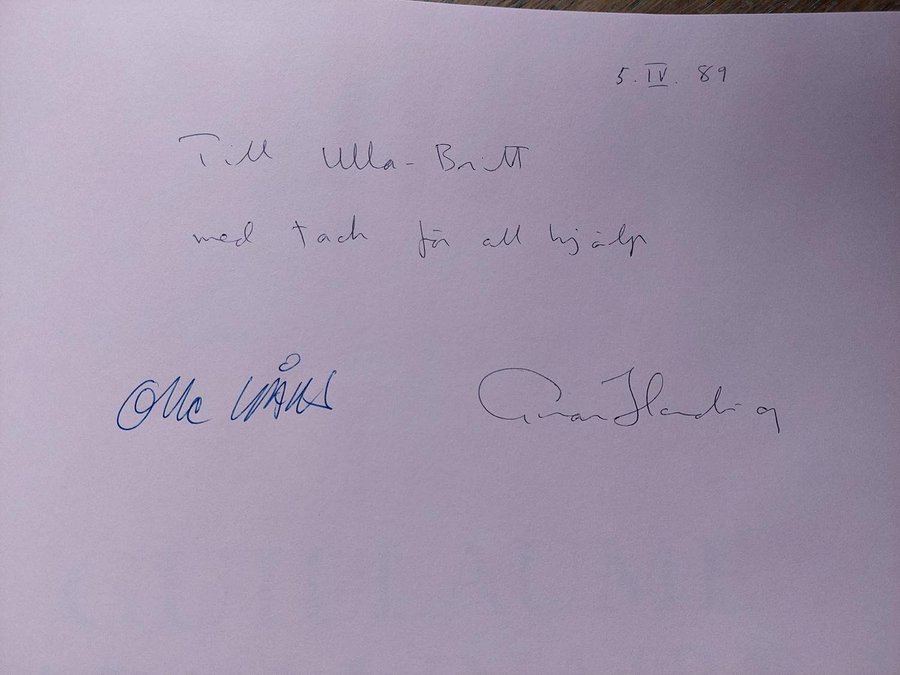 5. IV. 89
Till Ulla-Britt
med tack för all hjälp
Olle